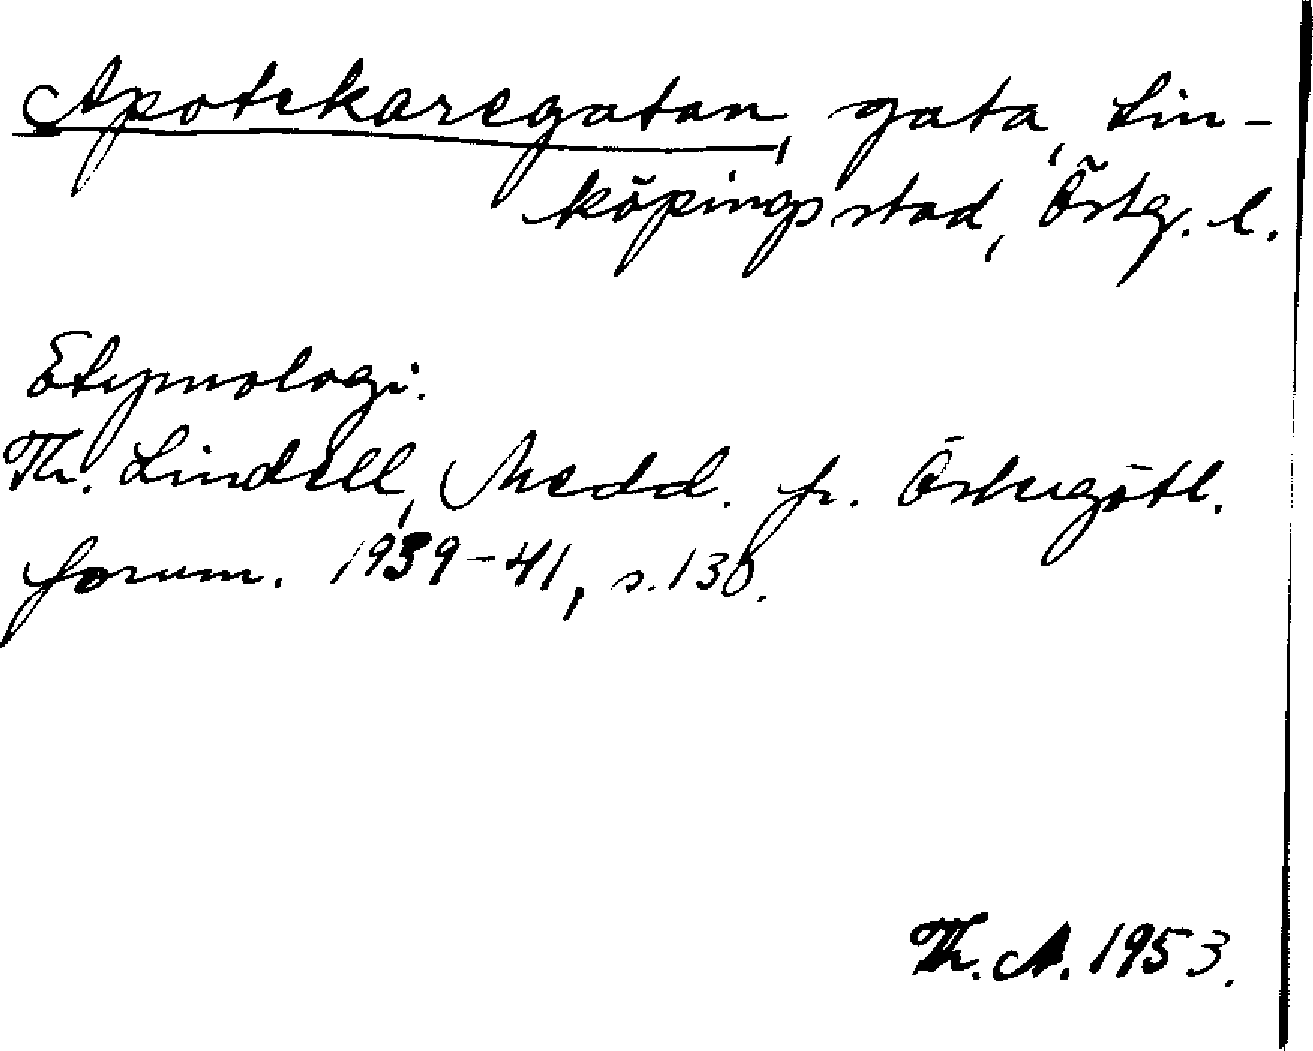 Apotekaregatan, gata, Lin-
köpings stad, Östg. l.
Etymologi.
Th. Lindell, Medd. fr. Östergötl.
fornm. 1939-41, s. 130.
Th. A. 1953.